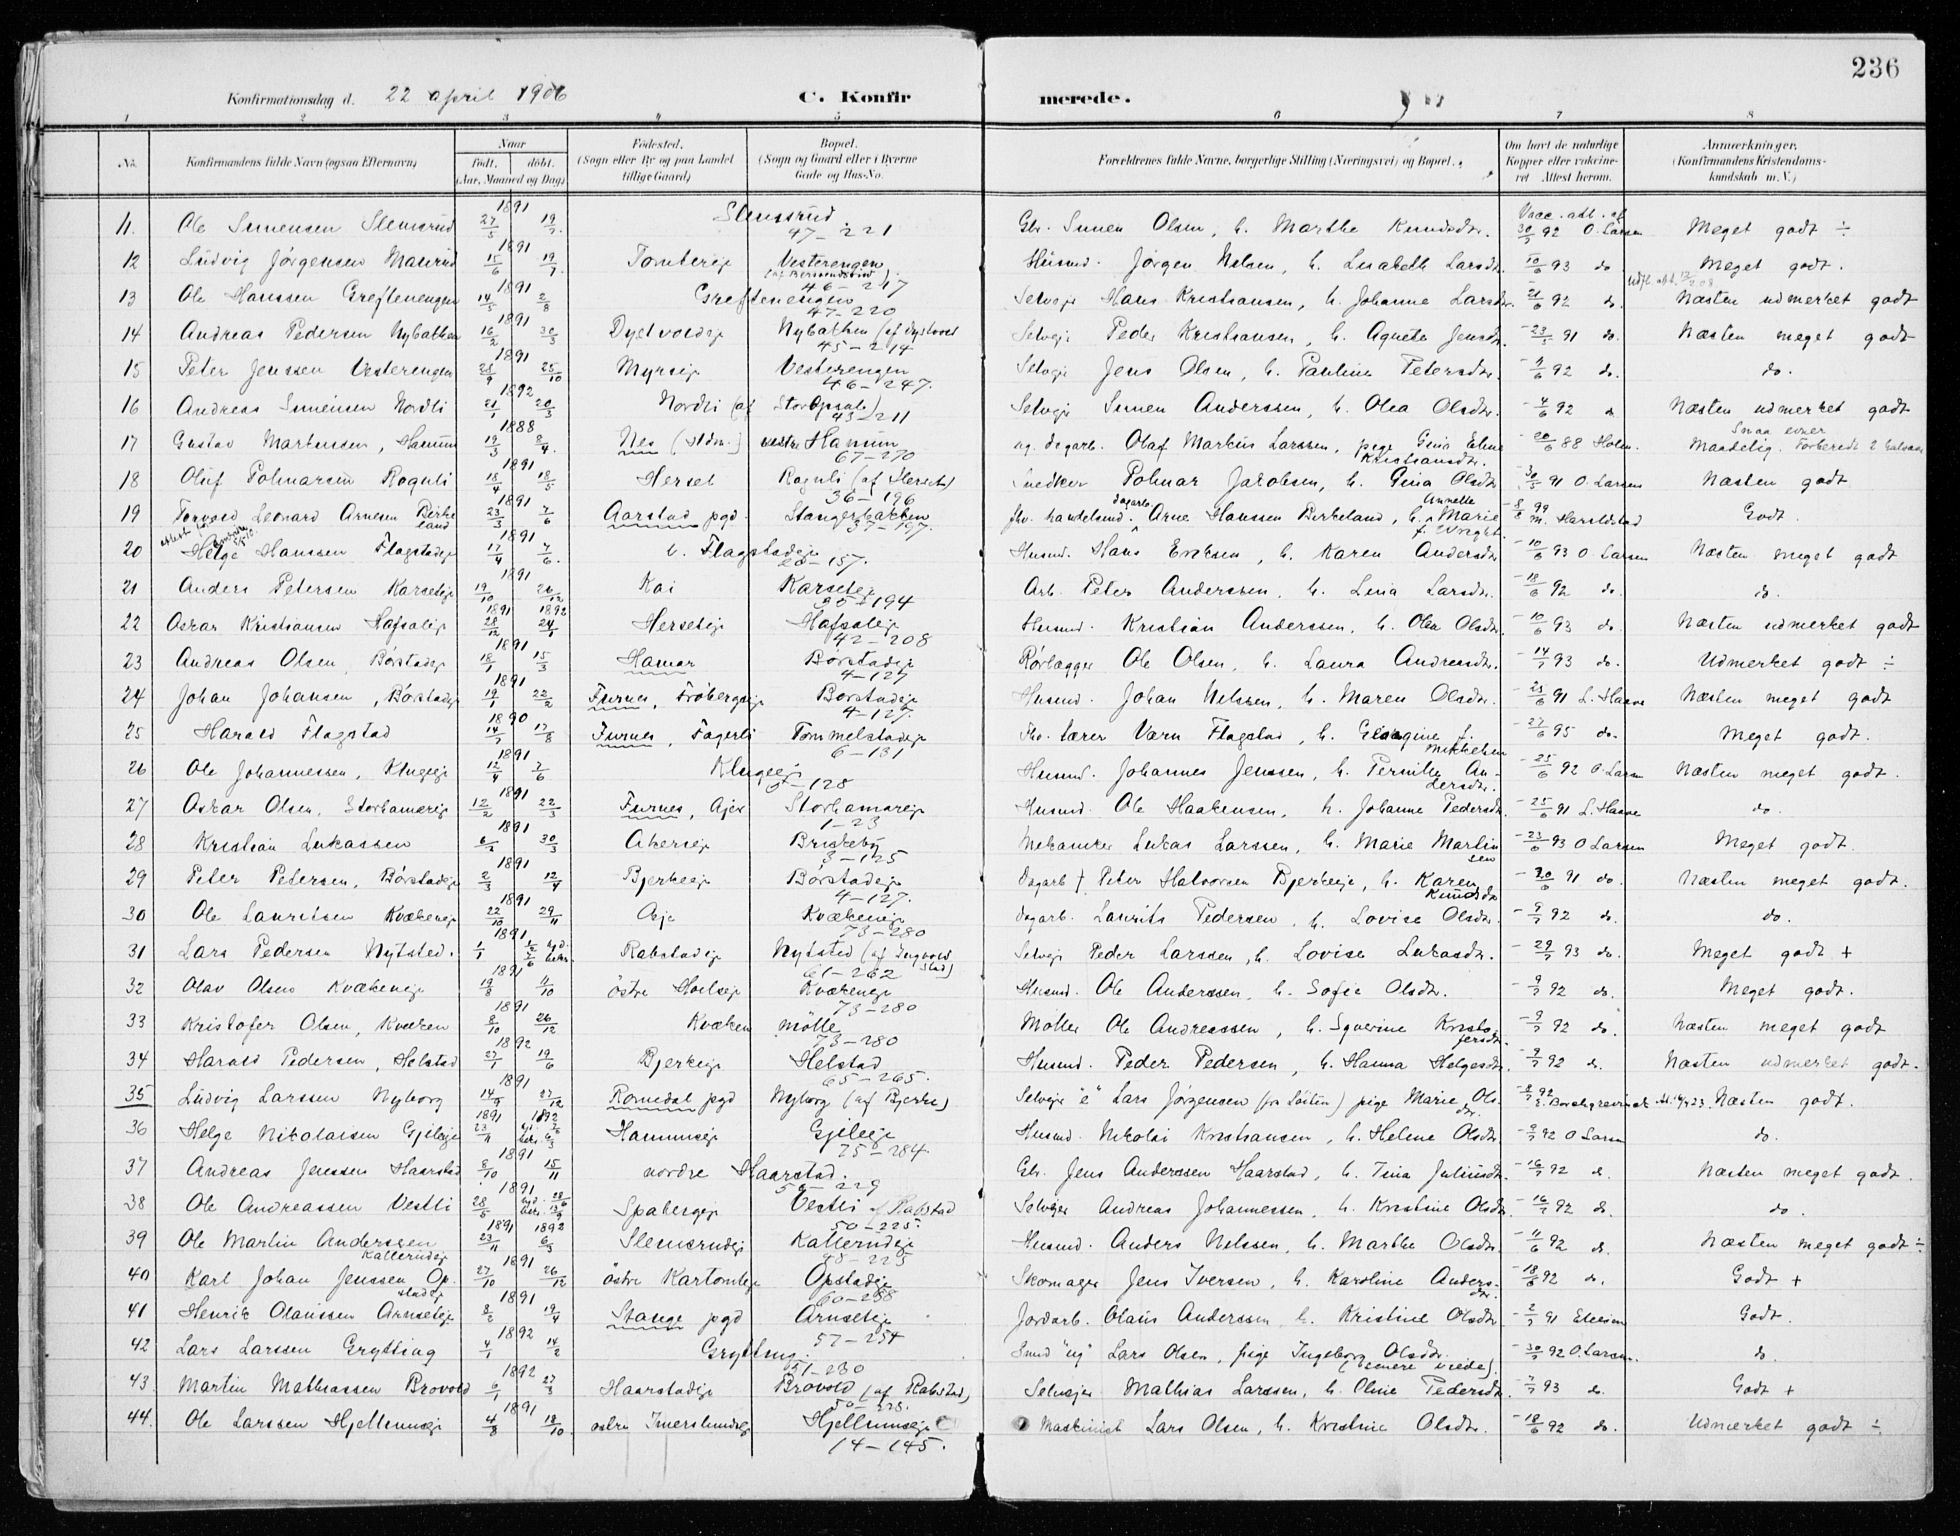 236
Konfirmationsdag d. 22 april 1906 C. Konfirmerede.
1 2 3 4 5 6 7 8
No. Konfirmandens fulde Navn (ogsaa Efternavn) Naar født, døbt. (Aar, Maaned og Dag) Fødested. (Sogn eller By og paa Landet tillige Gaard) Bopæl. (Sogn og Gaard eller i Byerne Gade og Hus-No. Forældrenes fulde Navne, borgerlige Stilling (Næringsvei) og Bopæl. Om havt de naturlige Kopper eller vaccineret Attest herom. Anmærkninger. (Konfirmandens Kristendomskundskab m. V.)
11. Ole Simensen Slemsrud 1891 27/5 19/7 Slemsrud 47-221 Gbr. Simen Olsen, h. Marthe Knudsdtr. Vacc. att. af 30/7 92 O. Larsen Meget godt ÷
12 Ludvig Jørgensen 1891 15/6 19/7 Tomtereje Vesterengen 46-247 Husmd. Jørgen Nilsen, h. Lisabeth Larsdtr. 10/6 93 do Meget godt.
13 Ole Hanssen Greftenengen 1891 14/5 2/8 Greftenengen 47-220 Selveje Hans Kristiansen, h. Johanne Larsdtr. 21/6 92 do. Næsten udmerket godt
14 Andreas Pedersen Nybakken 1891 16/2 30/3 Nybakken 45-214 Selveje Peder Kristiansen, h. Agnete Jensdtr. 91 do. Næsten meget godt
15 Peter Jenssen Vesterengen 1891 25/9 25/10 Myreje Vesterengen 46-247. Selveje Jens Olsen, h. Pauline Petersdtr. 92 do. do.
16 Andreas Simensen Nordli 1892 21/1 20/3 Nordli (af Storopsal) 43-211 Selveje Simen Anderssen, h. Olea Olsdtr. 4/6 92 do Næsten udmerket godt
17 Gustav Martinsen, Hanum 1888 19/3 2/4 Nes (Hdm.) vestre Hanum 67-270 ug. dagarb. Olaf Markus Larssen, pige Gina Eline Kristiansdtr. 20/6 88 Holm. Smaa evner Maadelig. Forberedt 2 halvaar
18 Oluf Polmarsen Rognli 1891 18/4 18/5 Hersel Rognli (af Hersel) 36-196 Snedker Polmar Jakobsen, h. Gina Olsdtr 30/5 91 O. Larsen Næsten godt
19 Torvold Leonard Arnesen Birkeland 1891 23/3 7/6 Aarstad pgd. Stangerbakken 37-197. fhv. handelsmd. dagarb. Arne Hanssen Birkeland, h. Annette Marie f. Wright. 8/6 99 M. Harildstad Godt.
20 Helge Hanssen Flagstadeje 1891 17/4 7/6. Flagstadeje 20-157. Husmd. Hans Eriksen, h. Karen Andersdtr 10/6 93 O. Larsen Næsten meget godt
21 Anders Petersen Karseteje 1891 19/10 26/12 Kai Karseteje 35-194 Arb. Peter Anderssen, h. Lina Larsdtr. 18/6 92 do. do.
22 Oskar Kristiansen Hafsaleje 1891 28/12 1892 24/1 Herseteje Hafsaleje 42-208 Husmd. Kristian Anderssen, h. Olea Olsdtr. 10/6 93 do. Næsten udmerket godt
23 Andreas Olsen, Børstadeje 1891 18/1 15/3 Hamar Børstadeje 4-127 Rørlægger Ole Olsen, h. Laura Andreasdtr. 14/7 93 do. Udmerket godt ÷
24 Johan Johansen, Børstadeje 1891 19/1 22/2 Furnes, Frøbergeje Børstadeje 4-127. Husmd. Johan Nilssen, h. Maren Olsdtr. 25/6 91 L. Haave Næsten meget godt
25 Harald Flagstad 1890 14/7 17/8 Furnes, Fagerli Tommelstadeje 6-131 Fhv. lærer Værn Flagstad, h. Georgine f. Mikkelsen 27/6 95 do. Meget godt.
26 Ole Johannessen, Klugeeje 1891 12/4 7/6 Klugeeje 5-128 Husmd. Johannes Jenssen, h. Pernille Andersdtr. 25/6 92 O. Larsen Næsten meget godt.
27 Oskar Olsen, Storhamareje 1891 12/2 22/3 Furnes, Storhamareje 1-23 Husmd. Ole Haakensen, h. Johanne Pedersdtr 25/6 91 L. Haave do.
28 Kristian Lukassen 1891 30/3 Akerseje Briskeby 3-125 Mekaniker Lukas Larssen, h. Marie Martinsen 23/6 93 O Larsen Meget godt.
29 Peter Petersen, Børstadeje 1891 2/3 12/4 Bjerkeeje Børstadeje 4-127. Dagarb. † Peter Halvorsen Bjerkeeje, h. Karen Knudsdtr 20/6 91 do. Næsten meget godt.
30 Ole Lauritsen Kvækeneje 1891 22/10 29/11 Kvækeneje 73-280 dagarb. Laurits Pedersen, h. Lovise Olsdtr. 9/7 92 do. do.
31 Lars Pedersen Nytsted. 1891 1/1 Rabstadeje Nytsted 61-262 Selveje Peder Larssen, h. Lovise Lukasdtr. 29/7 93 do. Meget godt +
32 Olav Olsen Kvækeneje 1891 19/8 11/10 østre Hoelseje Kvækeneje 73-280 Husmd. Ole Anderssen, h. Sofie Olsdtr. 9/7 92 do. Meget godt.
33 Kristofer Olsen, Kvæken 1891 8/10 26/12 Kvæken mølle 73-280 Møller Ole Andreassen, h. Syverine Kristofersdtr. 9/7 92 do. Næsten meget godt
34 Harald Pedersen, Helstad 1892 27/1 19/6 Bjerkeeje Helstad 65-265. Husmd. Peder Pedersen, h. Hanna Helgesdtr 9/7 92 do. Næsten udmerket godt.
35 Ludvig Larssen Nyborg 1891 14/9 27/12 Romedal pgd Nyborg (af Bjerke) Selveje "e" Lars Jørgensen (fra Løiten) pige Marie Olsdtr. 8/7 92 E. Borchgrevinck Næsten godt.
36 Helge Nikolaisen Gjileeje 1891 1892 Hanumseje Gjileeje 75-284 Husmd. Nikolai Kristiansen, h. Helene Olsdtr 9/7 92 O Larsen do.
37 Andreas Jenssen Haarstad 1891 8/10 15/11 nordre Haarstad. Gbr. Jens Anderssen Haarstad, h. Tina Juliusdtr 16/7 92 do. Næsten meget godt.
38 Ole Andreassen Vestli 1891 28/5 Spabergeje Vestli af Rabstad 50-225. Selvejer Andreas Johannessen, h. Kristine Olsdtr 16/7 92 do. do.
39 Ole Martin Anderssen Kallerudeje 1891 23/11 1892 6/3 Slemsrudeje Kallerudeje Husmd. Anders Nilssen, h. Marthe Olsdtr. 11/6 92 do. Næsten meget godt ÷
40 Karl Johan Jenssen Opstadeje 1891 27/10 26/12 østre Kartomteje Opstadeje 60-258 Skomager Jens Iversen, h. Karoline Andersdtr. 18/6 92 do. Godt +
41 Henrik Olaussen Arneseteje 1891 8/2 19/4 Stange pgd Arneseteje 57-254 Jordarb. Olaus Anderssen, h. Kristine Olsdtr 2/7 91 Godt.
42 Lars Larssen Grytting 1892 4/1 14/2 Grytting. 51-230 Smed "ug" Lars Olsen, pige Ingeborg Olsdtr. (senere viede). 30/7 92 O. Larsen. do.
43. Martin Mathiassen Brovold 1892 6/1 27/3 Haarstadeje Brovold (af Rabstad) 50-225. Selvejer Mathias Larssen, h. Oline Pedersdtr 7/7 93 do. Godt +
44. Ole Larssen Hjellumseje 1891 4/8 18/10. østre Imerslundeje Hjellumseje 14-145. Maskinist Lars Olsen, h. Kristine Olsdtr. 18/6 92 do. Udmerket godt ÷